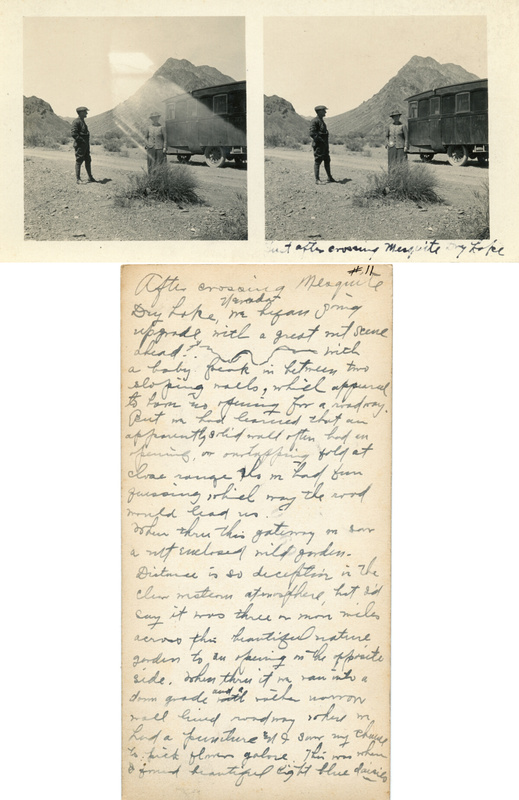 Just after crossing Mesquite Dry Lake
#11
After crossing Mesquite
Nevada
Dry Lake, we began going
upgrade with a great mt scene
ahead. with
a baby peak in between two
sloping walls, which appeared
to have no opening for a roadway.
But we had learned that an
apparently solid wall often had an
opening, or overlapping fold at
close range so we had fun
guessing which way the road
would lead us.
When thru this gateway we saw
a mt enclosed wild garden.
Distance is so deceptive in the
clear western atmosphere, but I'd
say it was three or more miles
across this beautiful nature
garden to an opening on the opposite
side. When thru it we ran into a
down grade and a rather narrow
wall lined roadway where we
had a puncture and I saw my chance
to pick flowers galore. This was where
I found beautiful light blue daisies